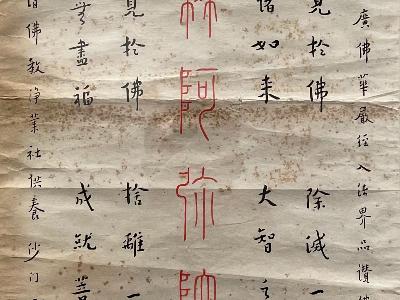 廣佛華嚴經入法界品讚佛
見於佛 除滅一
如來 大智
阿彌
見於佛 捨離一
無盡福 成就善
佛教淨業社供養 沙門